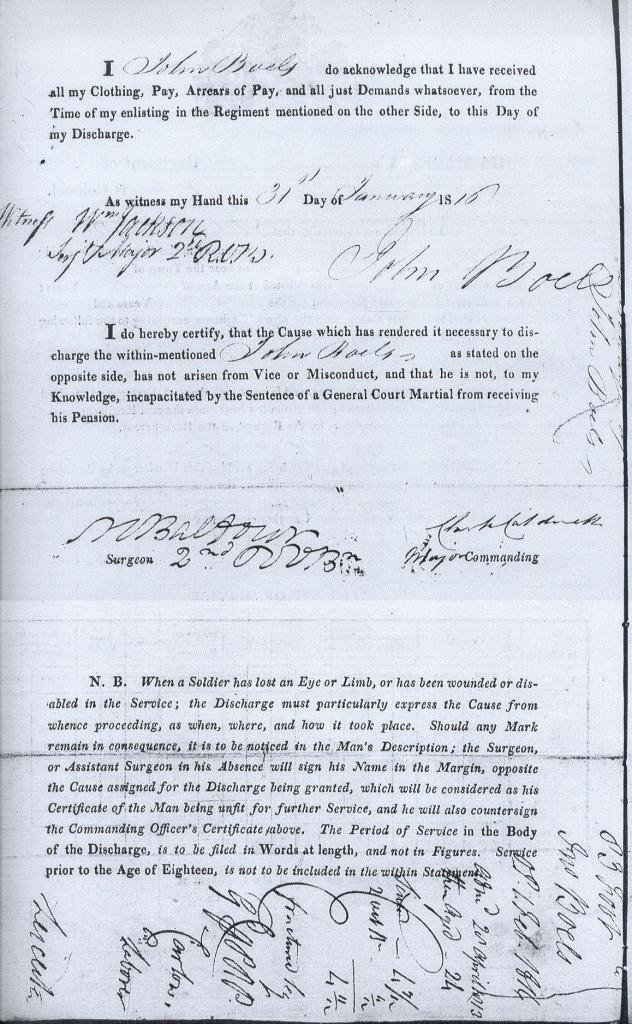 I John Boels do acknowledge that I have received
all my Clothing, Pay, Arrears of Pay, and all just Demands whatsoever, from the
Time of my enlisting in the Regiment mentioned on the other Side, to this Day of
my Discharge.
As witness my Hand this 31st Day of January 1816
Witness Wm Jackson
Serjt Major 2nd
John Boels
I do hereby certify, that the Cause which has rendered it necessary to dis-
charge the within-mentioned John Boels as stated on the
opposite side, has not arisen from Vice or Misconduct, and that he is not, to my
Knowledge, incapacitated by the Sentence of a General Court Martial from receiving
his Pension.
John Boels
Surgeon 2nd
Major Commanding
N. B. When a Soldier has lost an Eye or Limb, or has been wounded or dis-
abled in the Service; the Discharge must particularly express the Cause from
whence proceeding, as when, where, and how it took place. Should any Mark
remain in consequence, it is to be noticed in the Man's Description; the Surgeon,
or Assistant Surgeon in his Absence will sign his Name in the Margin, opposite
the Cause assigned for the Discharge being granted, which will be considered as his
Certificate of the Man being unfit for further Service, and he will also countersign
the Commanding Officer's Certificate above. The Period of Service in the Body
of the Discharge, is to be filed in Words at length, and not in Figures. Service
prior to the Age of Eighteen, is not to be included in the within Statement.
Jno Boels
2d April 1813
then aged 24
fractured leg
Carlow
Labourer